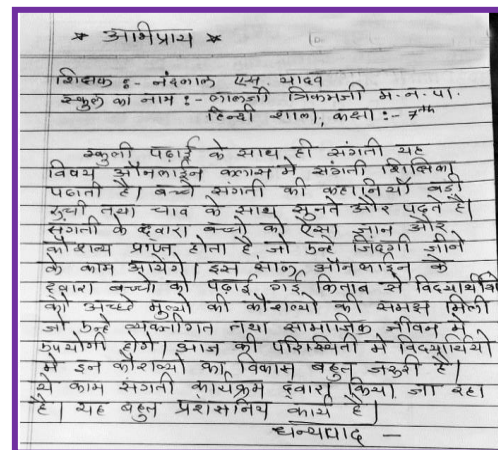 * अभिप्राय *
शिक्षक :- नंदलाल एस. यादव
स्कुल का नाम :- लालजी त्रिकमजी म.न.पा.
हिन्दी शाला, कक्षा :- 7th
स्कुली पढ़ाई के साथ ही संगती यह
विषय ऑनलाईन क्लास मे संगती शिक्षिका
पढाती है। बच्चे संगती की कहानियाँ बडी
रुची तथा चाव के साथ सुनते और पढ़ते है।
संगती के द्वारा बच्चो को ऐसा ज्ञान और
कौशल्य प्राप्त होता है जो उन्हे जिंदगी जीने
के काम आयेगे। इस साल ऑनलाईन के
द्वारा बच्चो को पढ़ाई गई किताब से विद्यार्थीयों
को अच्छे मुल्यो की कौशल्यो की समझ मिली
जो उन्हे व्यक्तीगत तथा सामाजिक जीवन मे
उपयोगी होंगे। आज की परिस्थिती मे विद्यार्थियो
मे इन कौशल्यो का विकास बहुत जरुरी है।
ये काम संगती कार्यक्रम द्वारा किया जा रहा
है। यह बहुत प्रशंसनिय कार्य है।
धन्यवाद —